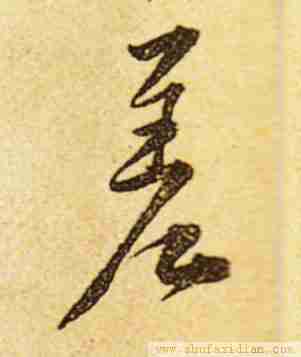 差
www.shufaxidian.com